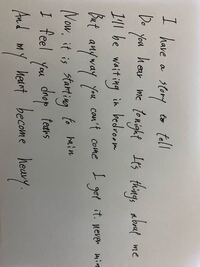 I have a story to tell
Do you hear me tonight Its things about me
I'll be waiting in bedroom
But anyway you can't come I get it. never min
Now, it is starting to rain
I feel you drop tears
And my heart become heavy.